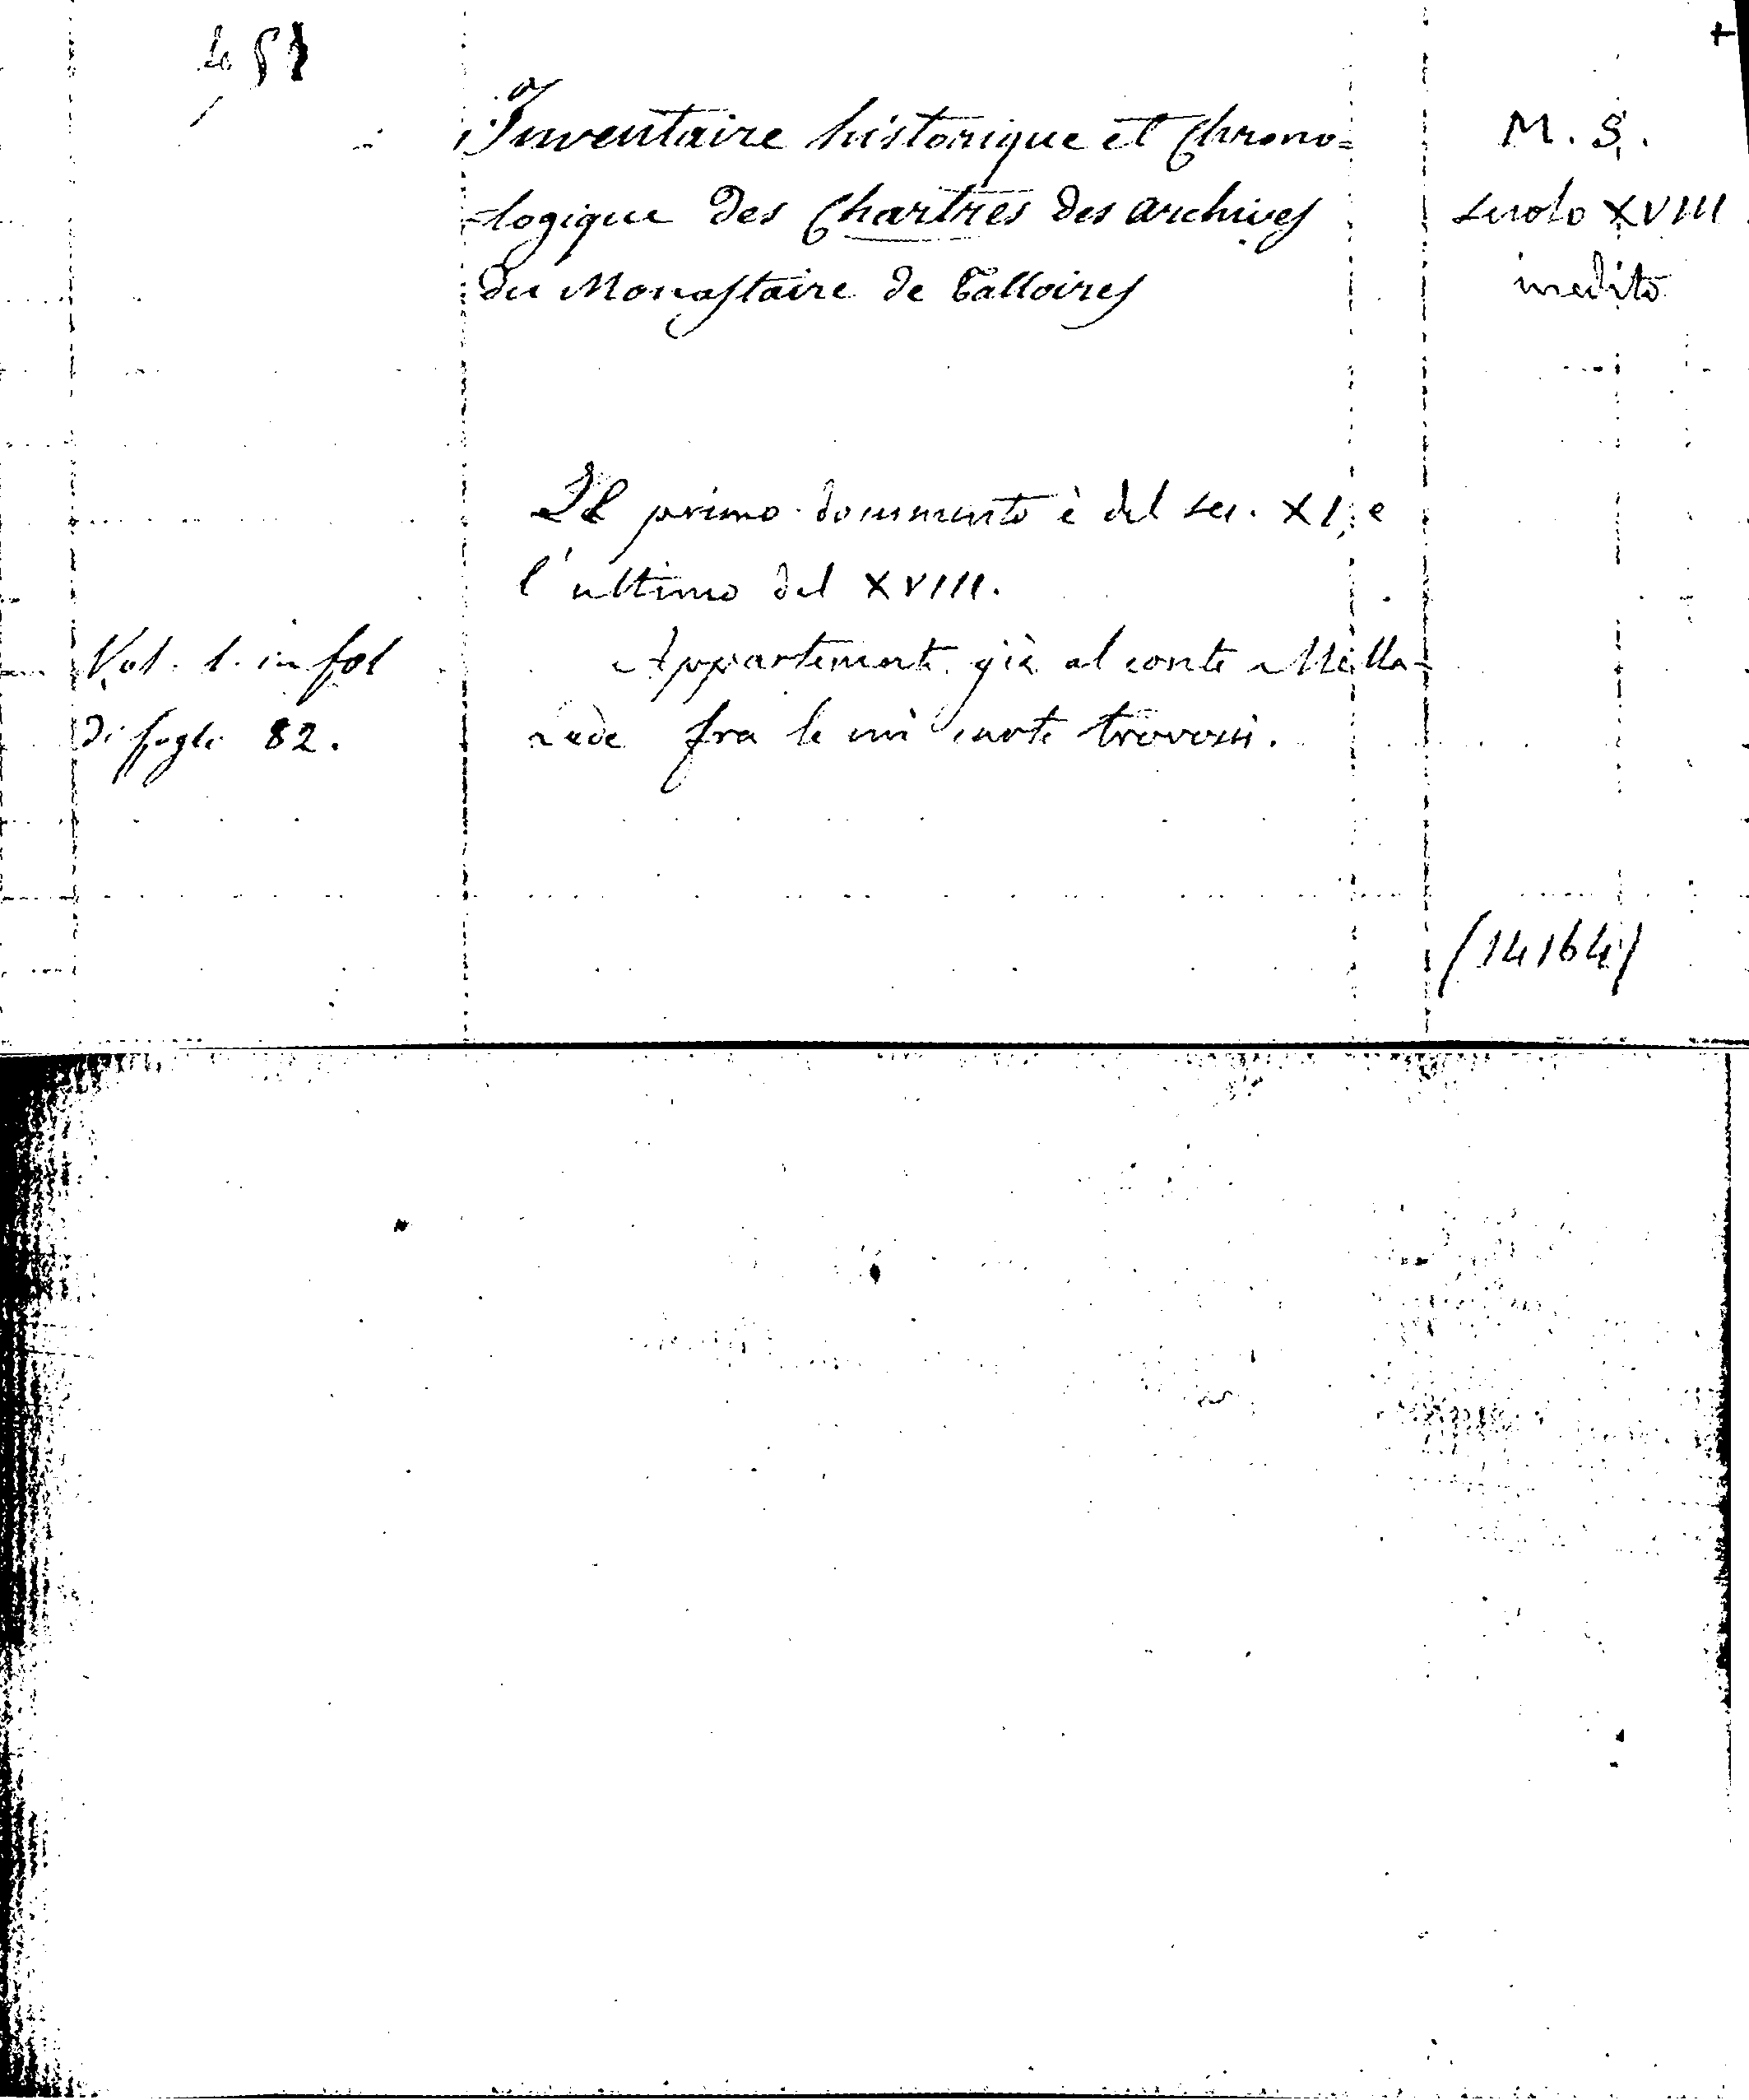 451
Inventaire historique et Chrono=
=logique des Chartres des archives
du Monastaire de Talloires
M. S.
secolo XVIII
inedito
Il primo documento è del sec. XI, e
l'ultimo del XVIII.
Vol. 1. in fol
di fogli 82.
Appartenente già al conte Mella-
rede fra le cui carte trovossi.
(14164)